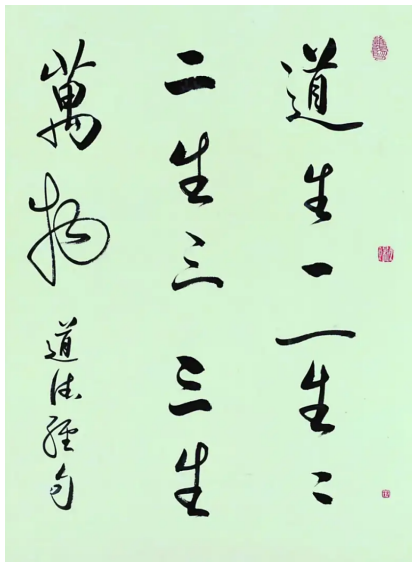 道生一一生二
二生三三生
萬物
道德經句